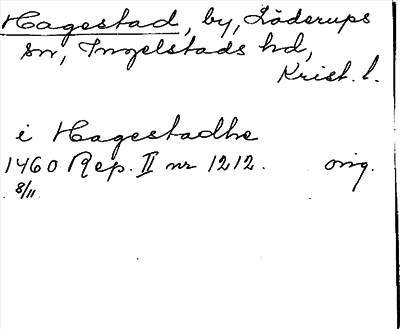 Hagestad, by, Löderups
sn, Ingelstads hd,
Krist. l.
i Hagestadhe
1460 Rep. II nr 1212. orig.
8/11